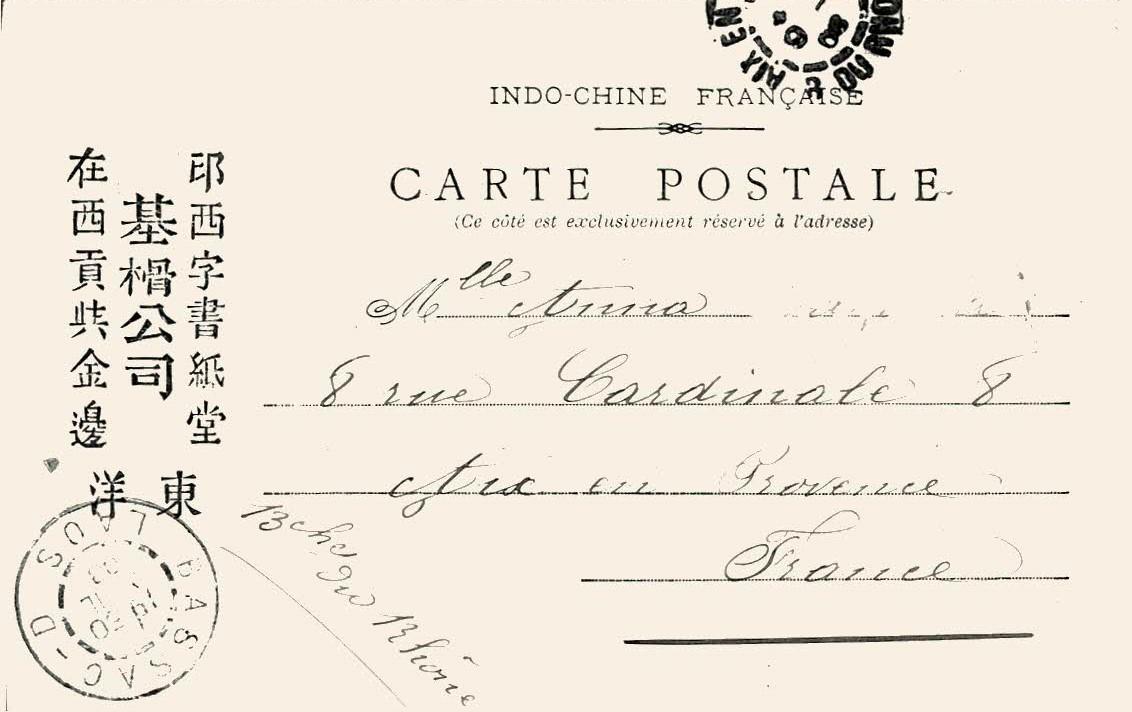 AIX EN
DU RHONE
INDO-CHINE FRANÇAISE
CARTE POSTALE
(Ce côté est exclusivement réservé à l'adresse)
Mlle Anna
8 rue Cardinale 8
Aix en Provence
France
Bches du Rhône
印西字書紙堂
基榾公司
在西貢共金邊
東洋
BASSAC-D
LAOS